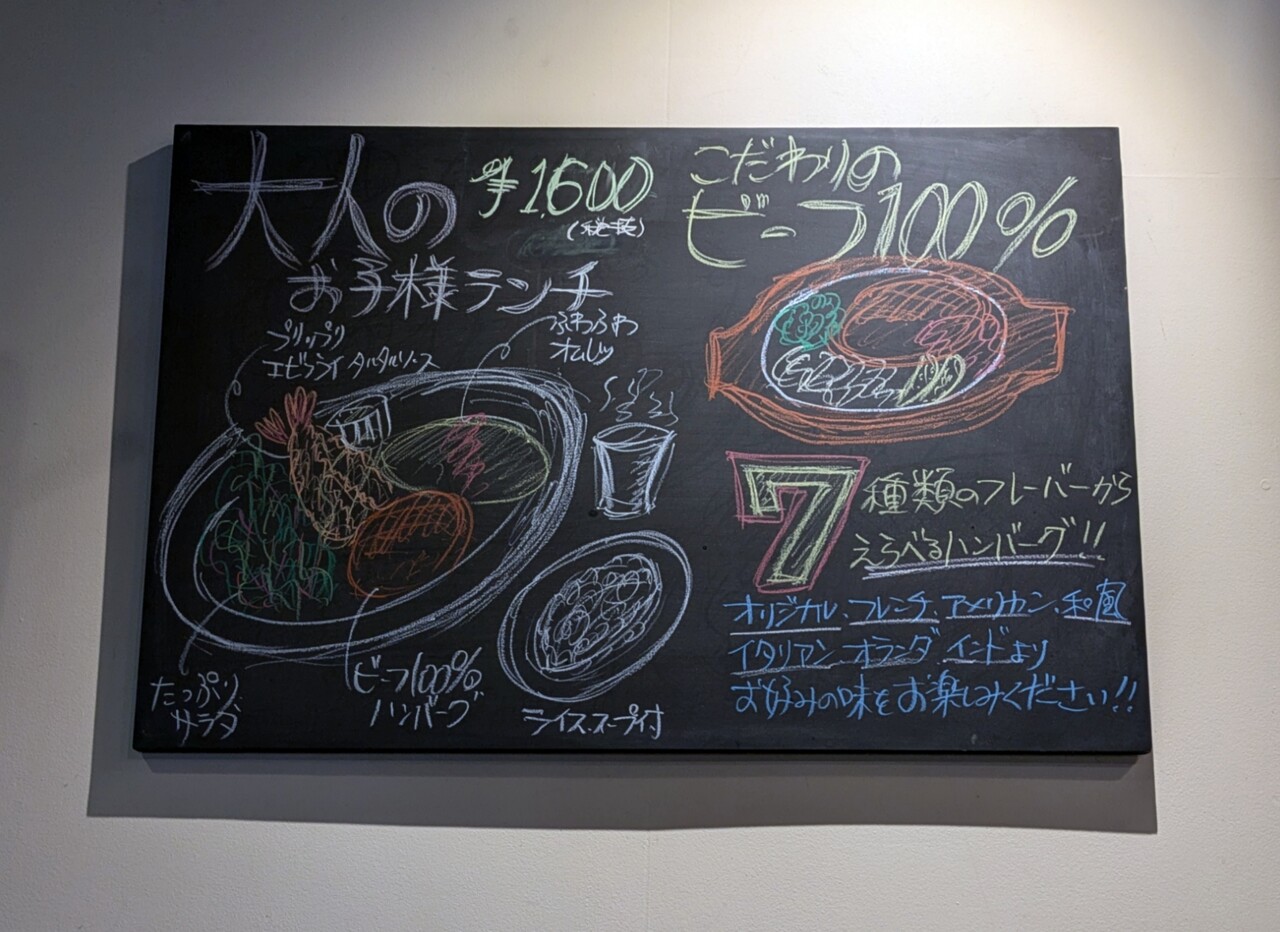 大人の
¥1,600
(税抜)
お子様ランチ
プリップリ
エビフライ タルタルソース
ふわふわ
オムレツ
たっぷり
サラダ
ビーフ100%
ハンバーグ
ライス、スープ付
こだわりの
ビーフ100%
7種類のフレーバーから
えらべるハンバーグ!!
オリジナル、フレンチ、アメリカン、和風
イタリアン、オランダ、インドより
お好みの味をお楽しみください!!